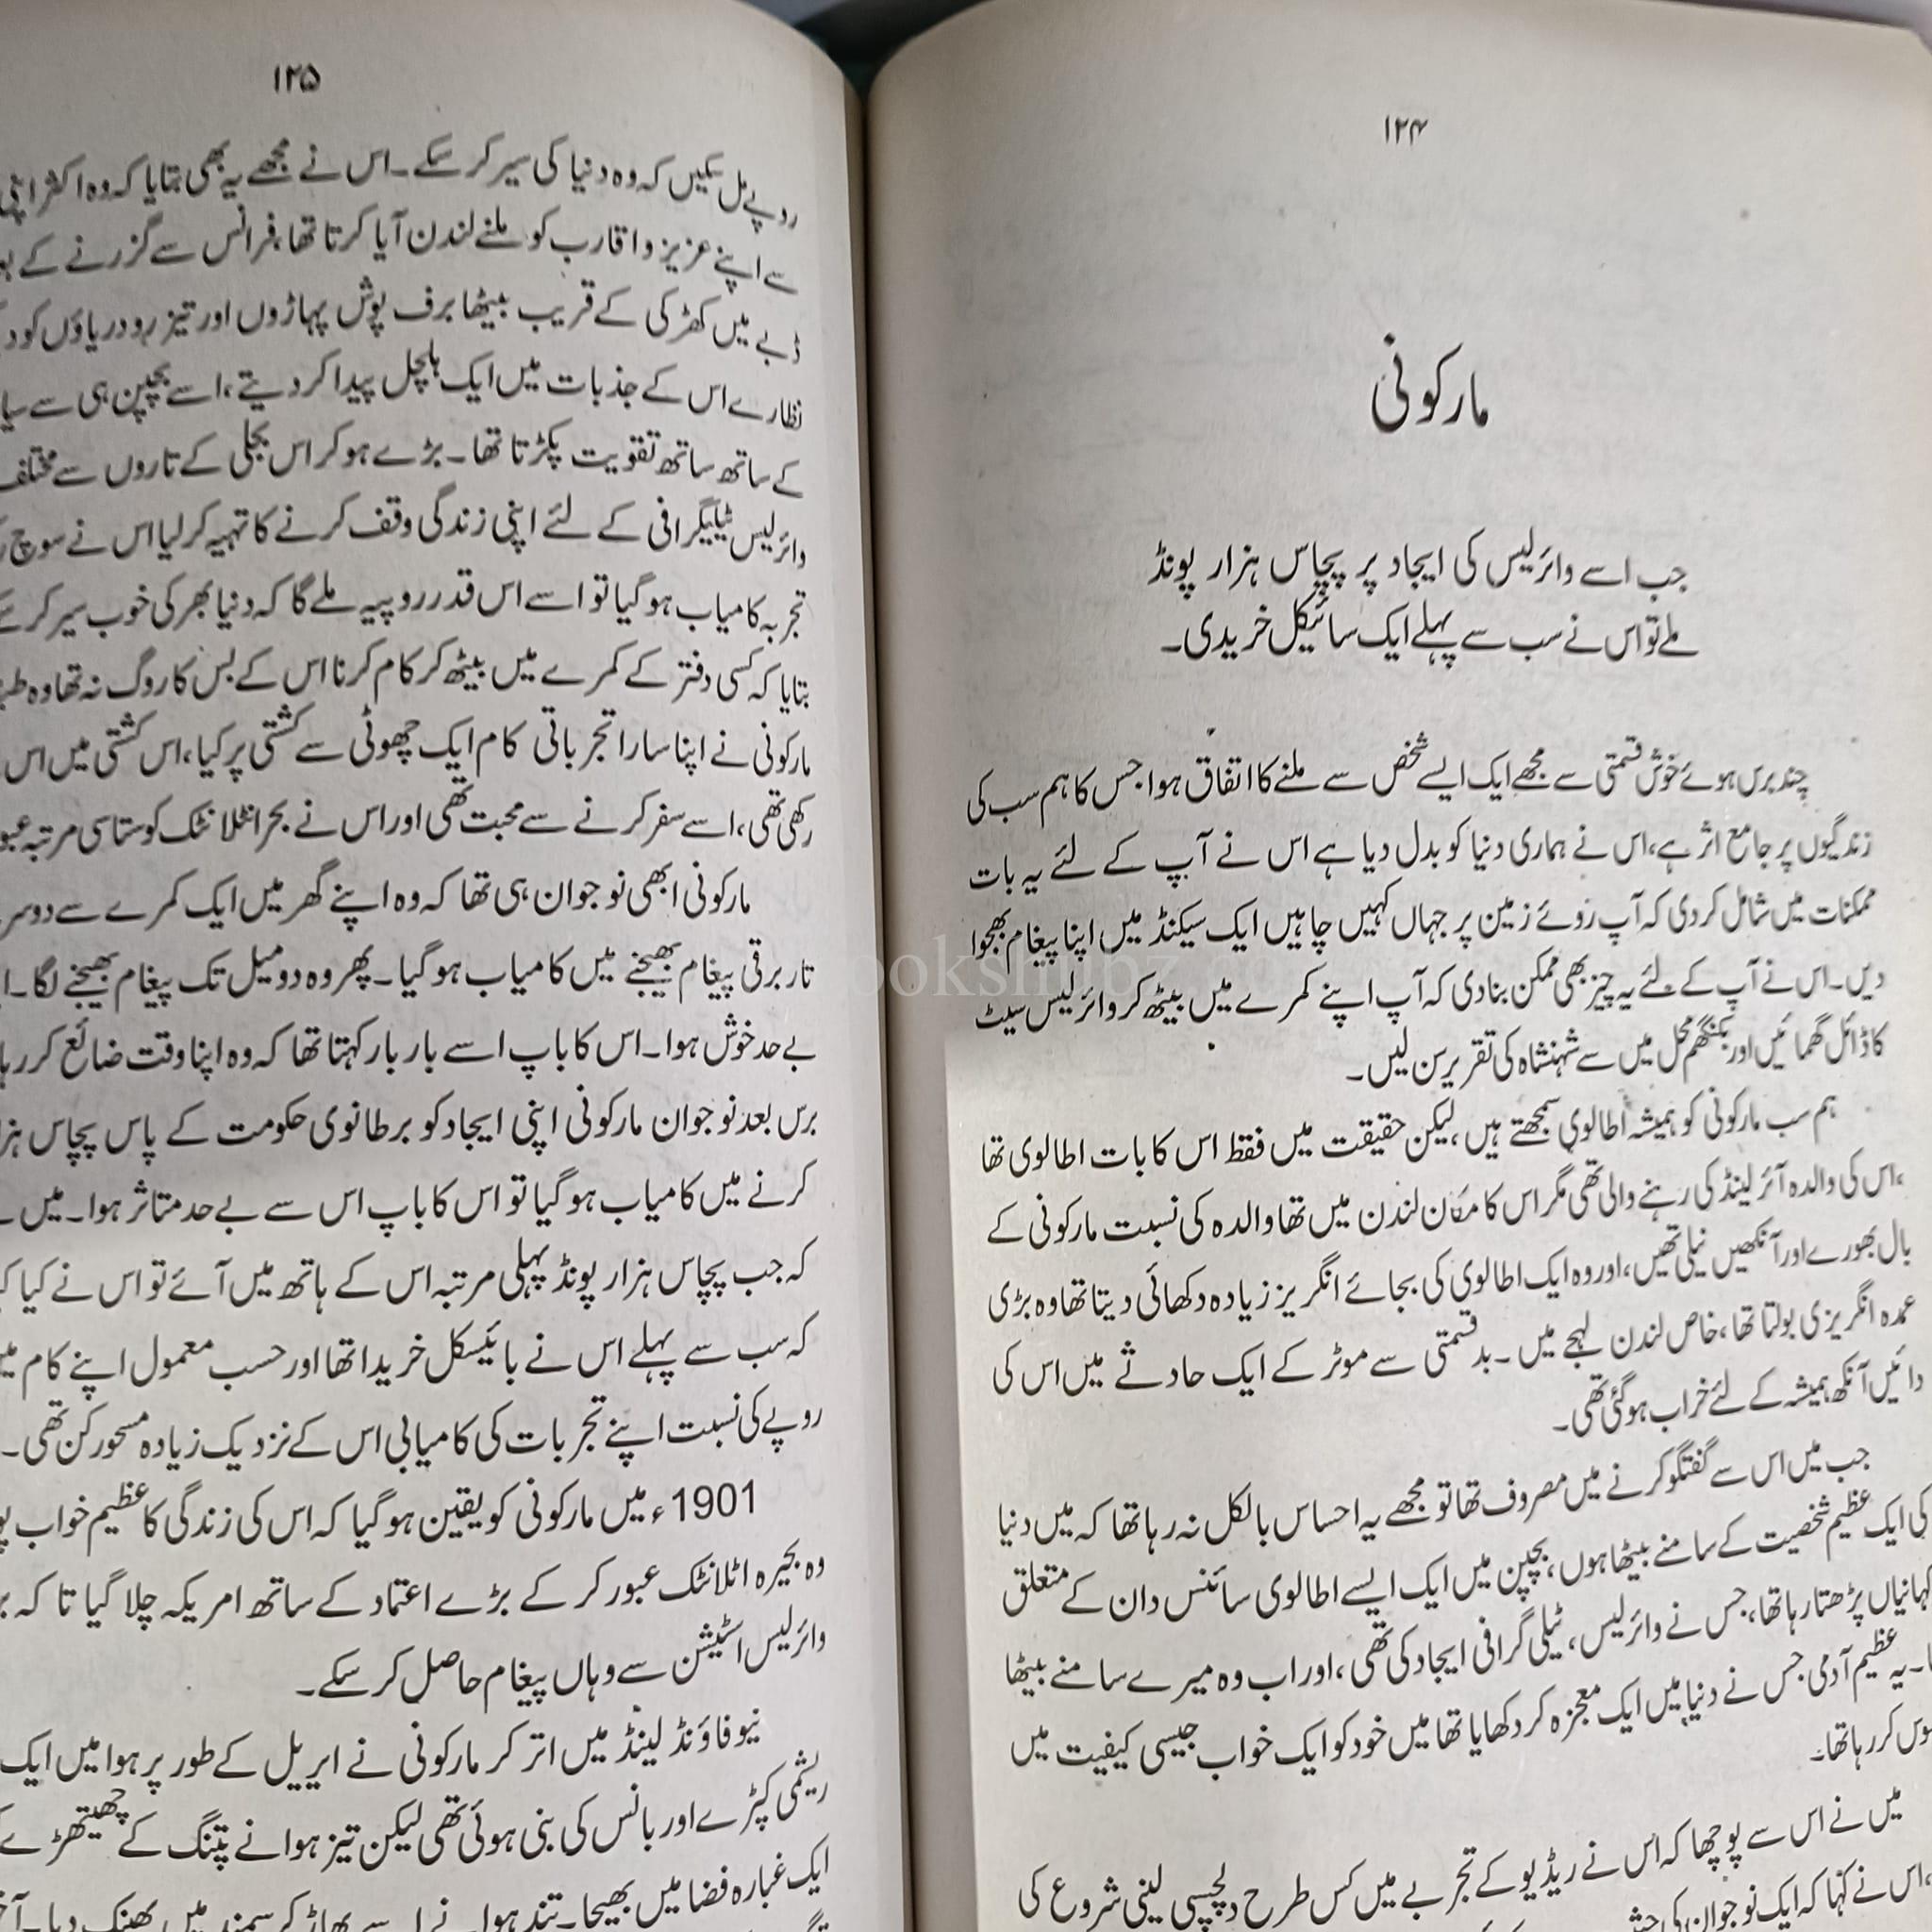 ۱۲۴
مارکونی
جب اسے وائرلیس کی ایجاد پر پچاس ہزار پونڈ
ملے تو اس نے سب سے پہلے ایک سائیکل خریدی۔
چند برس ہوئے خوش قسمتی سے مجھے ایک ایسے شخص سے ملنے کا اتفاق ہوا جس کا ہم سب کی
زندگیوں پر جامع اثر ہے، اس نے ہماری دنیا کو بدل دیا ہے اس نے آپ کے لئے یہ بات
ممکنات میں شامل کر دی کہ آپ روئے زمین پر جہاں کہیں چاہیں ایک سیکنڈ میں اپنا پیغام بھجوا
دیں۔ اس نے آپ کے لئے یہ چیز بھی ممکن بنا دی کہ آپ اپنے کمرے میں بیٹھ کر وائرلیس سیٹ
کا ڈائل گھمائیں اور بکنگھم محل میں سے شہنشاہ کی تقریر سن لیں۔
ہم سب مارکونی کو ہمیشہ اطالوی سمجھتے ہیں، لیکن حقیقت میں فقط اس کا بات اطالوی تھا
،اس کی والدہ آئر لینڈ کی رہنے والی تھی مگر اس کا مکان لندن میں تھا والدہ کی نسبت مارکونی کے
بال بھورے اور آنکھیں نیلی تھیں، اور وہ ایک اطالوی کی بجائے انگریز زیادہ دکھائی دیتا تھا وہ بڑی
عمدہ انگریزی بولتا تھا، خاص لندن لہجے میں۔ بدقسمتی سے موٹر کے ایک حادثے میں اس کی
دائیں آنکھ ہمیشہ کے لئے خراب ہو گئی تھی۔
جب میں اس سے گفتگو کرنے میں مصروف تھا تو مجھے یہ احساس بالکل نہ رہا تھا کہ میں دنیا
کی ایک عظیم شخصیت کے سامنے بیٹھا ہوں، بچپن میں ایک ایسے اطالوی سائنس دان کے متعلق
کہانیاں پڑھتا رہا تھا، جس نے وائرلیس، ٹیلی گرافی ایجاد کی تھی، اور اب وہ میرے سامنے بیٹھا
۔ یہ عظیم آدمی جس نے دنیا میں ایک معجزہ کر دکھایا تھا میں خود کو ایک خواب جیسی کیفیت میں
کر رہا تھا۔
میں نے اس سے پوچھا کہ اس نے ریڈیو کے تجربے میں کس طرح دلچسپی لینی شروع کی
،اس نے کہا کہ ایک نوجوان کی
۱۲۵
روپے مل سکیں کہ وہ دنیا کی سیر کر سکے۔ اس نے مجھے یہ بھی بتایا کہ وہ اکثر اپنی
سے اپنے عزیز و اقارب کو ملنے لندن آیا کرتا تھا، فرانس سے گزرنے کے
ڈبے میں کھڑکی کے قریب بیٹھا برف پوش پہاڑوں اور تیز رو دریاؤں کو
نظارے اس کے جذبات میں ایک ہلچل پیدا کر دیتے، اسے بچپن ہی سے
کے ساتھ ساتھ تقویت پکڑتا تھا۔ بڑے ہو کر اس بجلی کے تاروں سے مختلف
وائرلیس ٹیلیگرافی کے لئے اپنی زندگی وقف کرنے کا تہیہ کر لیا اس نے سوچ
تجربہ کامیاب ہو گیا تو اسے اس قدر روپیہ ملے گا کہ دنیا بھر کی خوب سیر کر
بتایا کہ کسی دفتر کے کمرے میں بیٹھ کر کام کرنا اس کے بس کا روگ نہ تھا وہ
مارکونی نے اپنا سارا تجرباتی کام ایک چھوٹی سے کشتی پر کیا، اس کشتی میں اس
رکھی تھی، اسے سفر کرنے سے محبت تھی اور اس نے بحر اٹلانٹک کو ستاسی مرتبہ
مارکونی ابھی نوجوان ہی تھا کہ وہ اپنے گھر میں ایک کمرے سے
تار برقی پیغام بھیجنے میں کامیاب ہو گیا۔ پھر وہ دو میل تک پیغام بھیجنے لگا۔
بے حد خوش ہوا۔ اس کا باپ اسے بار بار کہتا تھا کہ وہ اپنا وقت ضائع کر رہا
برس بعد نوجوان مارکونی اپنی ایجاد کو برطانوی حکومت کے پاس پچاس
کرنے میں کامیاب ہو گیا تو اس کا باپ اس سے بے حد متاثر ہوا۔ میں
کہ جب پچاس ہزار پونڈ پہلی مرتبہ اس کے ہاتھ میں آئے تو اس نے کیا
کہ سب سے پہلے اس نے بائیسکل خریدا تھا اور حسب معمول اپنے کام
روپے کی نسبت اپنے تجربات کی کامیابی اس کے نزدیک زیادہ مسحور کن تھی۔
1901ء میں مارکونی کو یقین ہو گیا کہ اس کی زندگی کا عظیم خواب
وہ بحیرہ اٹلانٹک عبور کر کے بڑے اعتماد کے ساتھ امریکہ چلا گیا تا کہ
وائرلیس اسٹیشن سے وہاں پیغام حاصل کر سکے۔
نیو فاؤنڈ لینڈ میں اتر کر مارکونی نے ایریل کے طور پر ہوا میں ایک
ریشمی کپڑے اور بانس کی بنی ہوئی تھی لیکن تیز ہوا نے پتنگ کے چھیتھڑے
ایک غبارہ فضا میں بھیجا۔ تند ہوا نے اسے پھاڑ کر سمندر میں پھینک دیا۔